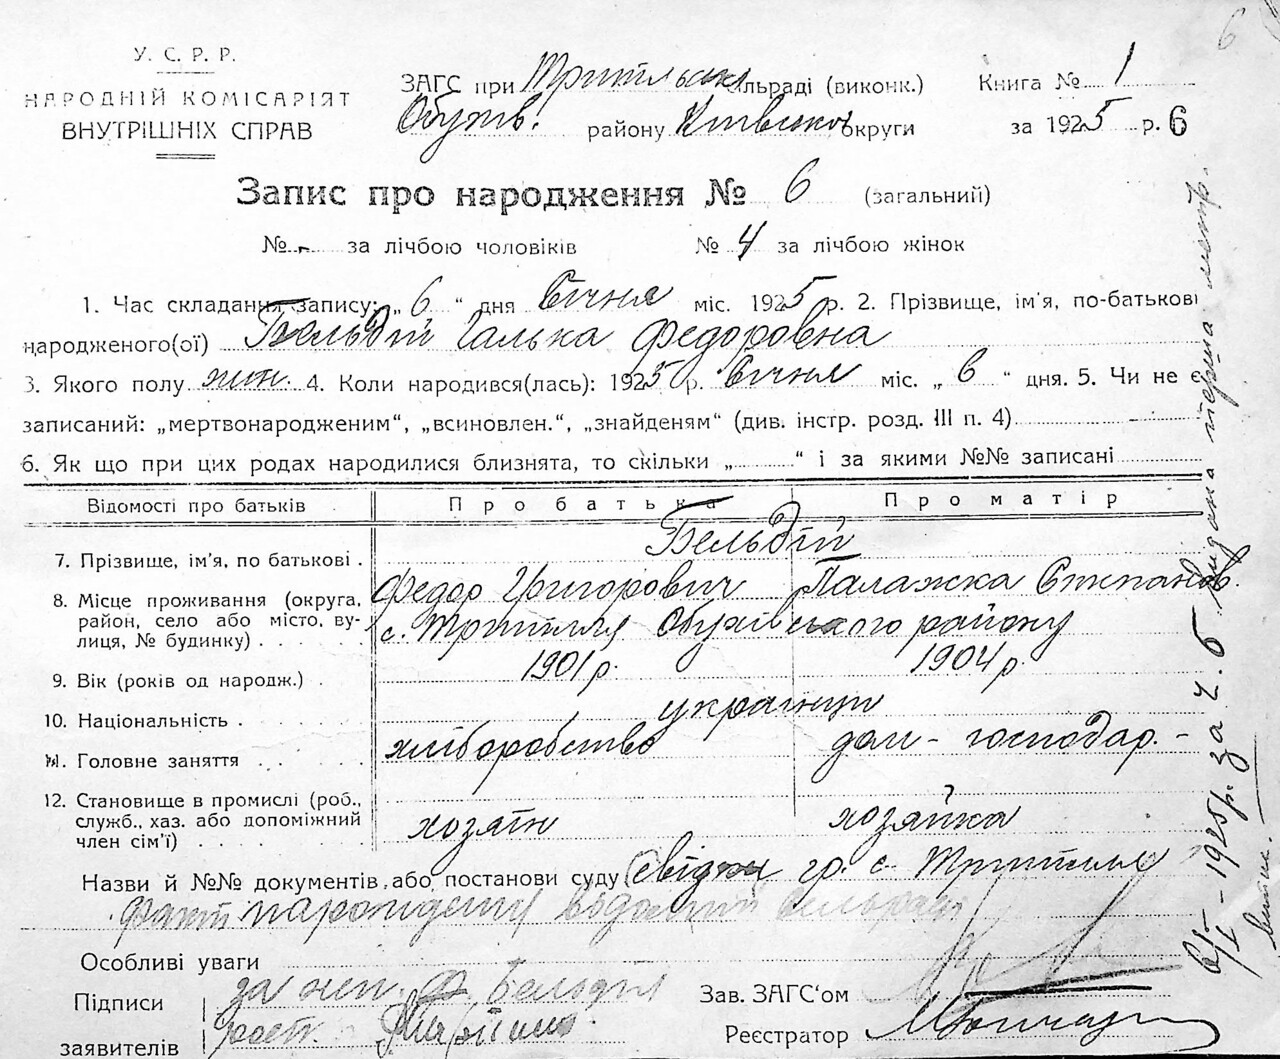 6
У. С. Р. Р.
НАРОДНІЙ КОМІСАРІЯТ
ВНУТРІШНІХ СПРАВ
ЗАГС при Трипільськ. сільраді (виконк.)
Обухів. району Київської округи
Книга № 1
за 1925 р. 6
Запис про народження № 6 (загальний)
№ - за лічбою чоловіків № 4 за лічбою жінок
1. Час складання запису: „ 6 “ дня Січня міс. 1925 р. 2. Прізвище, ім'я, по-батькові
народженого(ої) Бельдій Галька Федоровна
3. Якого полу жін. 4. Коли народився(лась): 1925 р. Січня міс. „ 6 “ дня. 5. Чи не є
записаний: „мертвонародженим“, „всиновлен.“, „знайденям“ (див. інстр. розд. III п. 4)
6. Як що при цих родах народилися близнята, то скільки „ “ і за якими №№ записані
Відомості про батьків Про батька Про матір
7. Прізвище, ім'я, по батькові . Бельдій
Федор Григорович Палажка Степанов.
8. Місце проживання (округа,
район, село або місто, ву-
лиця, № будинку) . . . . .
с. Трипілля Обухівського району
9. Вік (років од народж.) . 1901 р. 1904 р.
10. Національність . українци
11. Головне заняття . . хліборобство дом - господар. -
12. Становище в промислі (роб.,
служб., хаз. або допоміжний
член сім'ї) . . . . .
хозяін хозяйка
Назви й №№ документів, або постанови суду свідки гр. с. Трипілля
факт народження сельраді
Особливі уваги
Підписи
заявителів
за неп. Ф. Бельдій
Зав. ЗАГС'ом
Реєстратор
1925 р. за ч. 6 видана перша метр.
витяг.